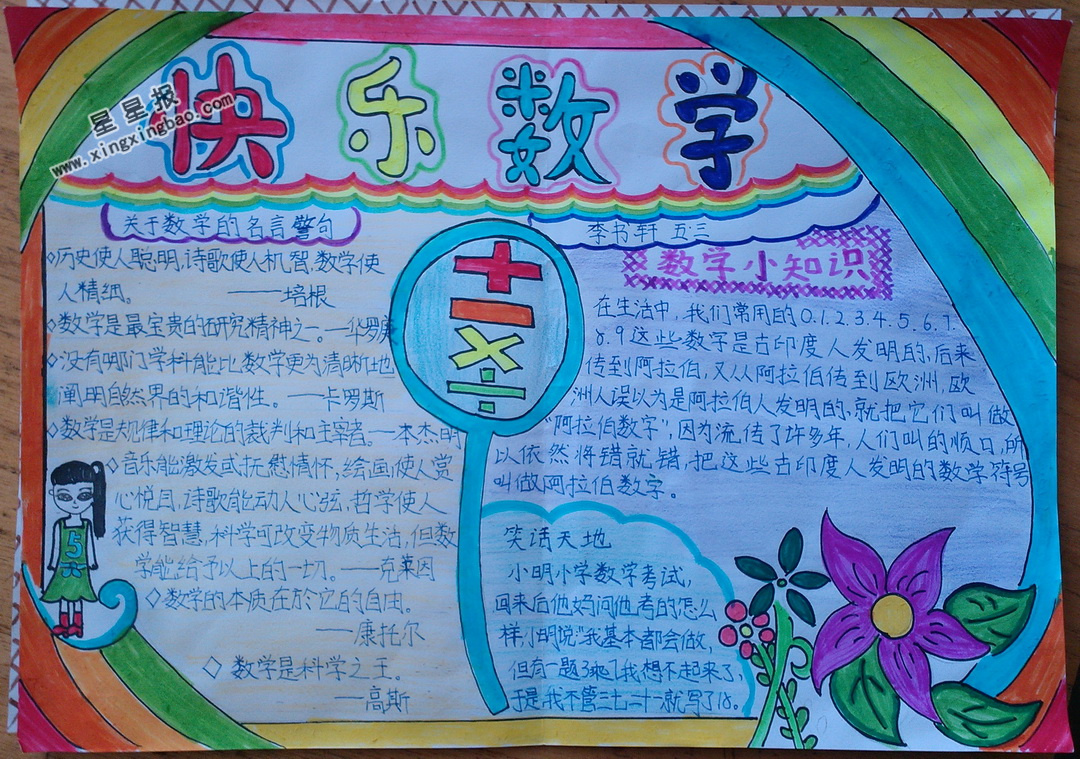 快乐数学
星星报
www.xingxingbao.com
关于数学的名言警句
◇历史使人聪明,诗歌使人机智,数学使
人精细。 ——培根
◇数学是最宝贵的研究精神之一。—华罗庚
◇没有哪门学科能比数学更为清晰地
阐明自然界的和谐性。—卡罗斯
◇数学是规律和理论的裁判和主宰者。—本杰明
◇音乐能激发或抚慰情怀,绘画使人赏
心悦目,诗歌能动人心弦,哲学使人
获得智慧,科学可改变物质生活,但数
学能给予以上的一切。—克莱因
◇数学的本质在於它的自由。
——康托尔
◇ 数学是科学之王。
—高斯
+
−
×
÷
5
李书轩 五三
数字小知识
在生活中,我们常用的0.1.2.3.4.5.6.7.
8.9这些数字是古印度人发明的,后来
传到阿拉伯,又从阿拉伯传到欧洲,欧
洲人误以为是阿拉伯人发明的,就把它们叫做
“阿拉伯数字”,因为流传了许多年,人们叫的顺口,所
以依然将错就错,把这些古印度人发明的数学符号
叫做阿拉伯数字。
笑话天地
小明小学数学考试,
回来后他妈问他考的怎么
样,小明说:“我基本都会做,
但有一题3乘7我想不起来了,
于是我不管三七二十一就写了18。